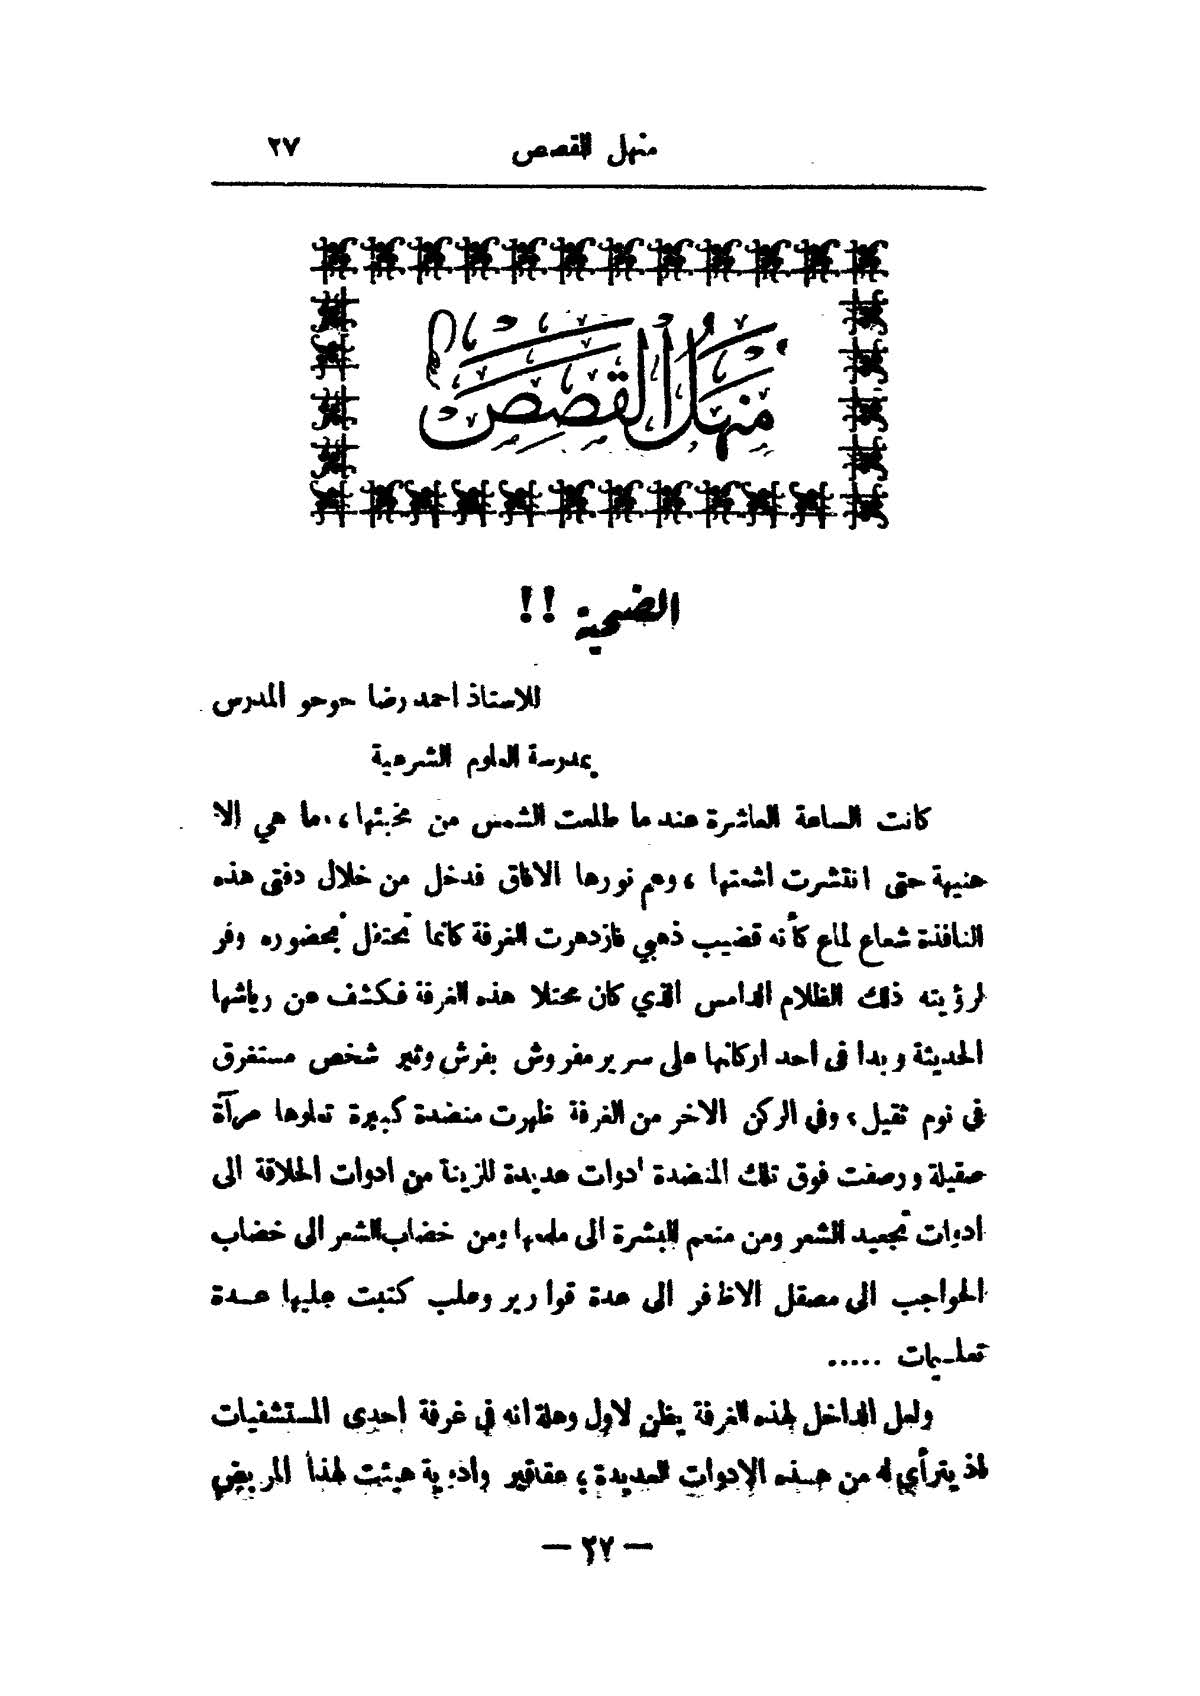 منهل القصص ٢٧
منهل القصص
الضحية !!
للاستاذ احمد رضا حوحو المدرس
بمدرسة العلوم الشرعية
كانت الساعة العاشرة عند ما طلعت الشمس من مخبئها، ما هي إلا
هنيهة حتى انتشرت اشعتها ، وعم نورها الافاق فدخل من خلال دفتى هذه
النافذة شعاع لماع كأنه قضيب ذهبي فازدهرت الغرفة كانما تحتفل بحضوره وفر
لرؤيته ذلك الظلام الدامس الذي كان محتلا هذه الغرفة فكشف عن رياشها
الحديثة وبدا فى احد اركانها على سرير مفروش بفرش وثير شخص مستغرق
في نوم ثقيل، وفي الركن الاخر من الغرفة ظهرت منضدة كبيرة تعلوها مرآة
صقيلة ورصفت فوق تلك المنضدة ادوات عديدة للزينة من ادوات الحلاقة الى
ادوات تجعيد الشعر ومن منعم البشرة الى ملمعها ومن خضاب الشعر الى خضاب
الحواجب الى مصقل الاظافر الى عدة قوارير وعلب كتبت عليها عـدة
تعلـيمات .....
ولعل الداخل لهذه الغرفة يظن لاول وهلة انه في غرفة احدى المستشفيات
اذ يترأي له من هـذه الادوات العديدة ، عقاقير وادوية هيئت لهذا المريض
— ٢٧ —